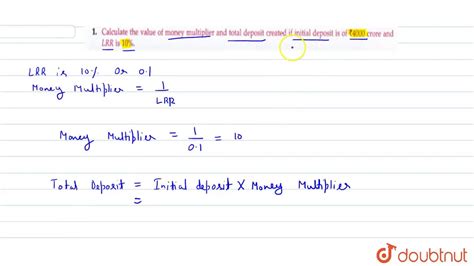 1. Calculate the value of money multiplier and total deposit created if initial deposit is of ₹4000 crore and
LRR is 10%.
LRR is 10% Or 0.1
Money Multiplier = 1/LRR
Money Multiplier = 1/0.1 = 10
Total Deposit = Initial deposit X Money Multiplier
=
doubtnut